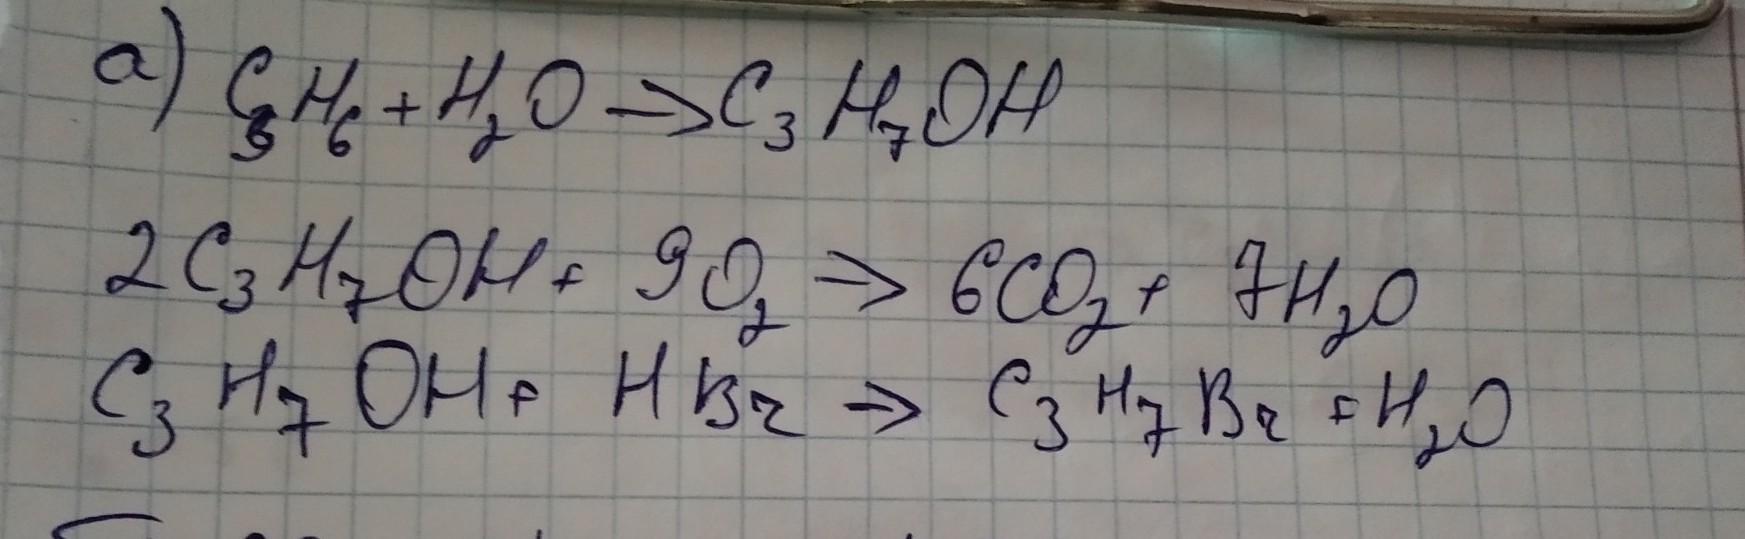 а) C₃H₆ + H₂O → C₃H₇OH
2C₃H₇OH + 9O₂ → 6CO₂ + 7H₂O
C₃H₇OH + HBr → C₃H₇Br + H₂O